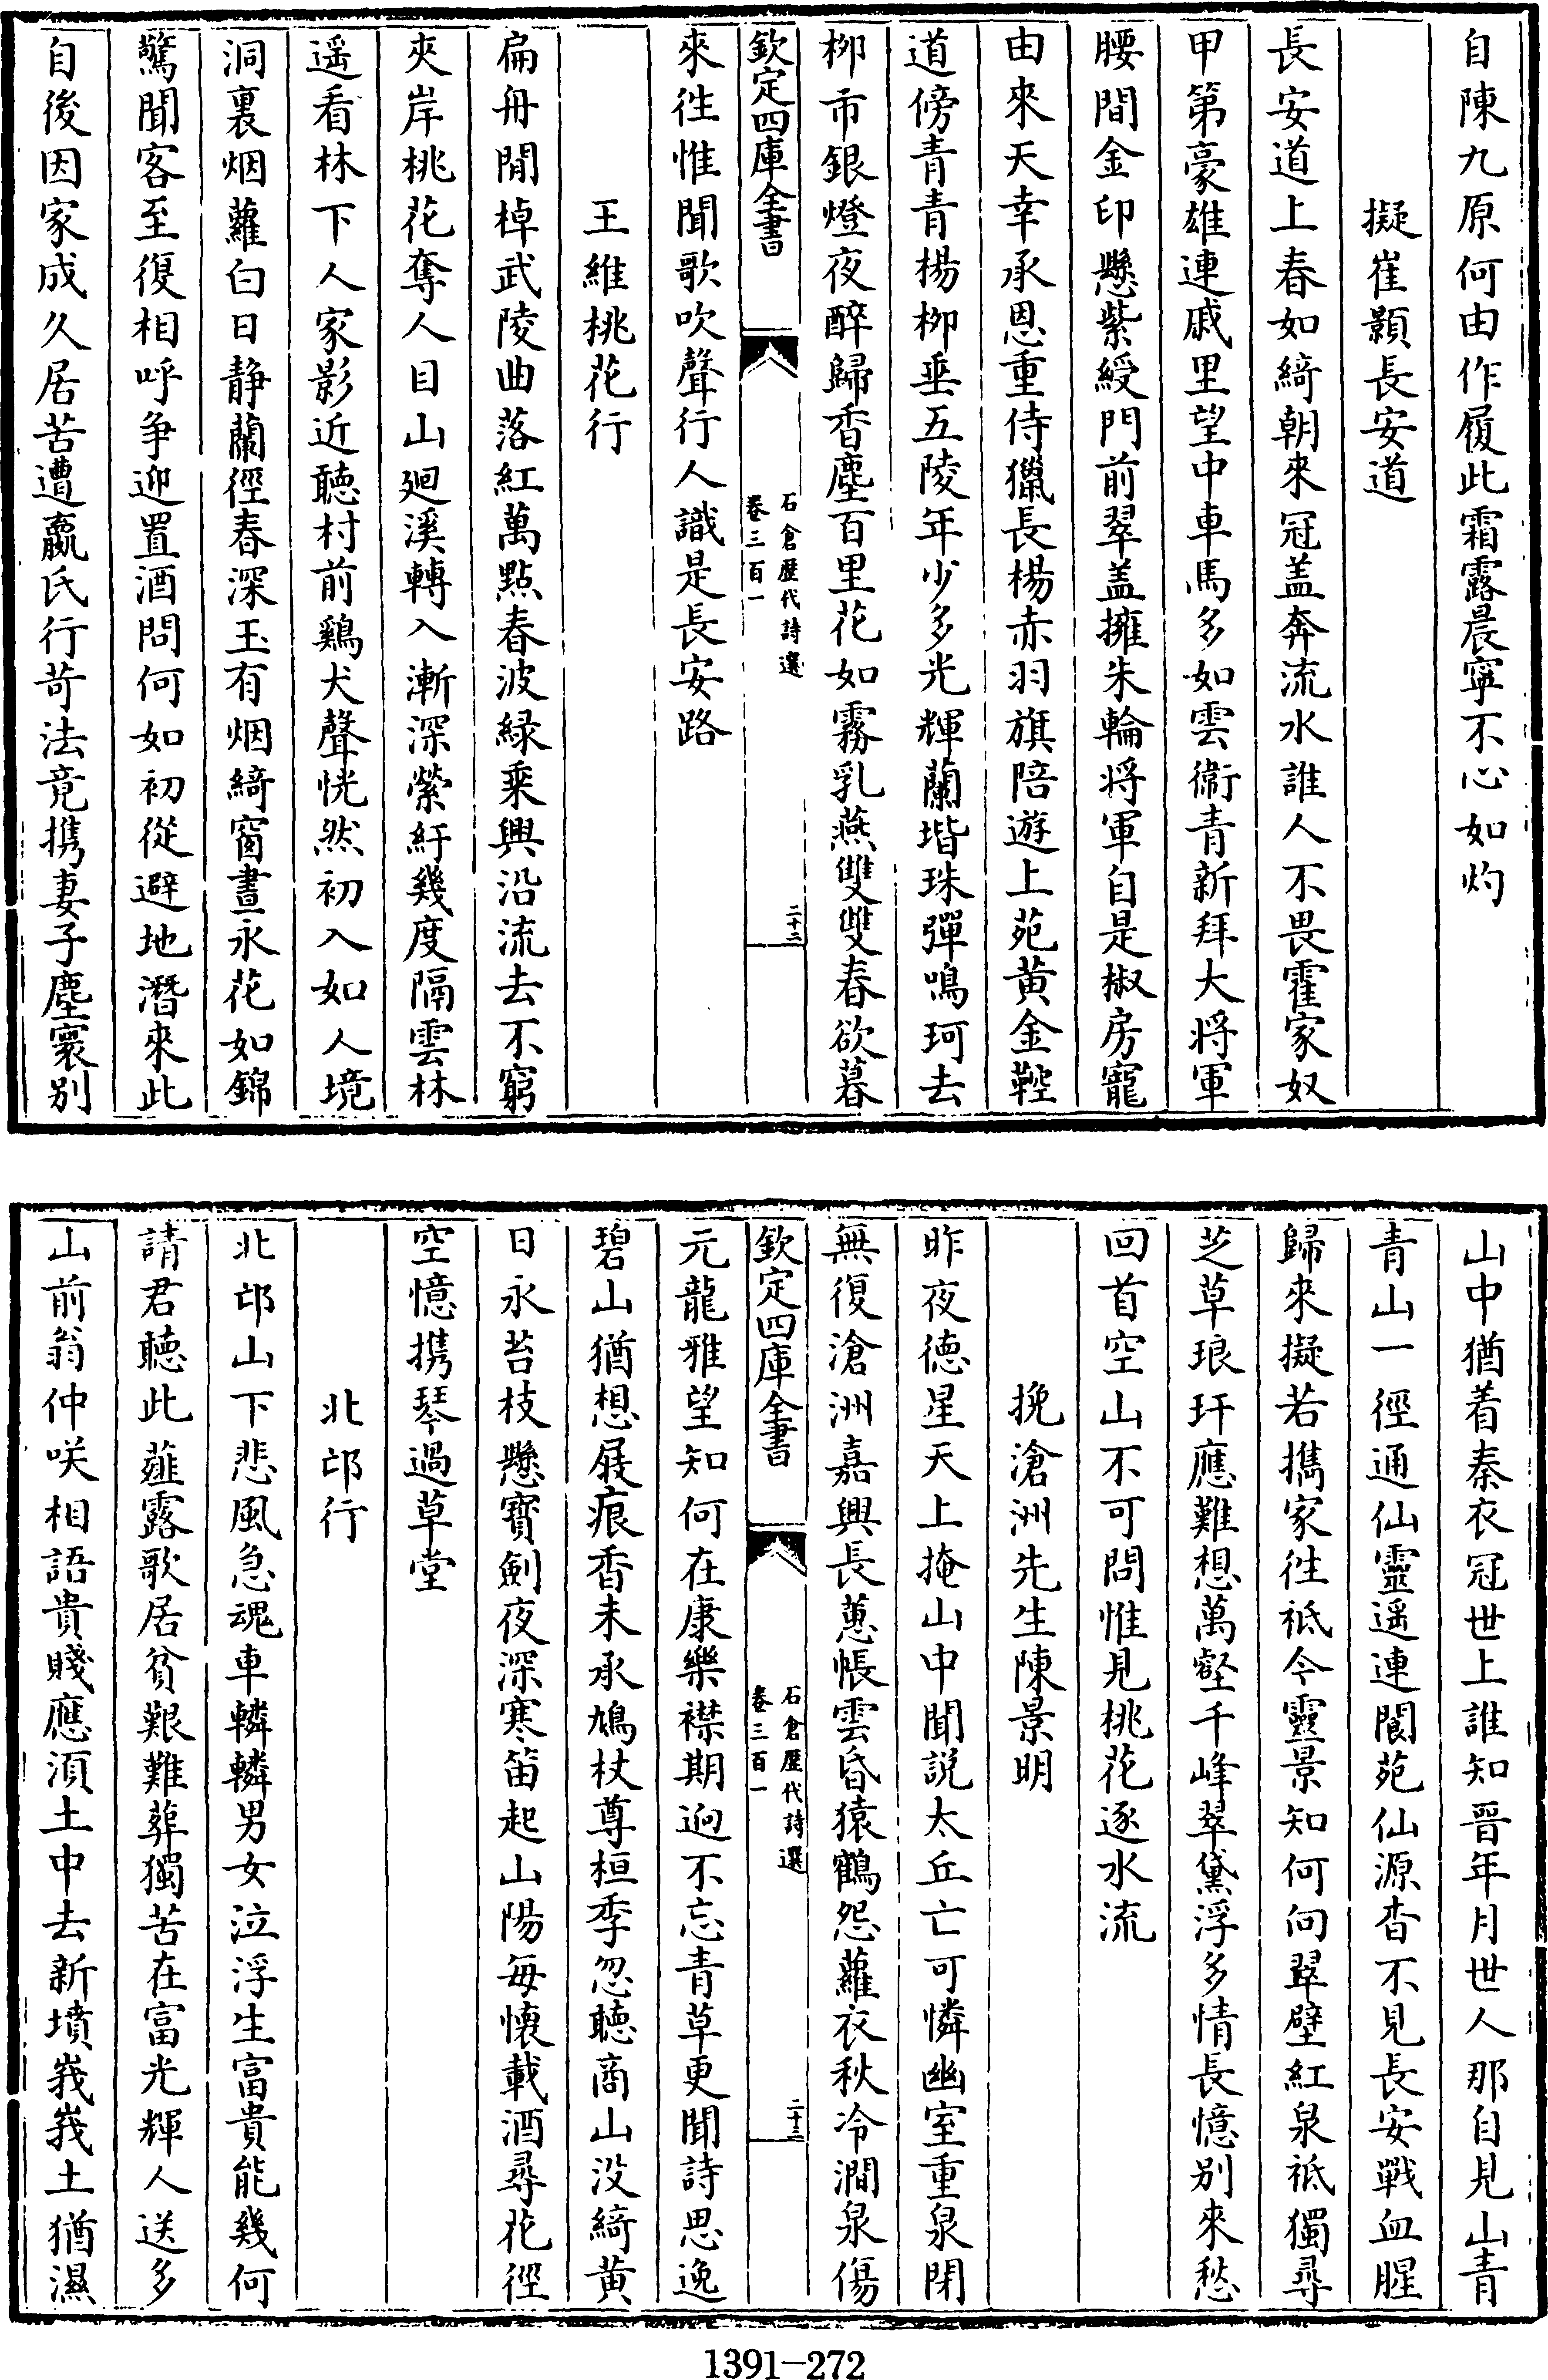 自陳九原何由作履此霜露晨寧不心如灼
擬崔顥長安道
長安道上春如綺朝來冠盖奔流水誰人不畏霍家奴
甲第豪雄連戚里望中車馬多如雲衞青新拜大將軍
腰間金印懸紫綬門前翠盖擁朱輪將軍自是椒房寵
由來天幸承恩重侍獵長楊赤羽旗陪遊上苑黄金鞚
道傍青青楊栁垂五陵年少多光輝蘭堦珠彈鳴珂去
栁市銀燈夜醉歸香塵百里花如霧乳燕雙雙春欲暮
欽定四庫全書
石倉歴代詩選
卷三百一
二十二
來徃惟聞歌吹聲行人識是長安路
王維桃花行
扁舟閒棹武陵曲落紅萬點春波緑乘興沿流去不窮
夾岸桃花奪人目山廻溪轉入漸深縈紆幾度隔雲林
遥看林下人家影近聽村前鷄犬聲恍然初入如人境
洞裏烟蘿白日静蘭徑春深玉有烟綺窗晝永花如錦
驚聞客至復相呼争迎置酒問何如初從避地潛來此
自後因家成久居苦遭嬴氏行苛法竟携妻子塵寰别
山中猶着秦衣冠世上誰知晉年月世人那自見山青
青山一徑通仙靈遥連閬苑仙源杳不見長安戰血腥
歸來擬若攜家徃祗今靈景知何向翠壁紅泉祗獨尋
芝草琅玕應難想萬壑千峰翠黛浮多情長憶别來愁
回首空山不可問惟見桃花逐水流
挽滄洲先生陳景明
昨夜德星天上掩山中聞説太丘亡可憐幽室重泉閉
無復滄洲嘉興長蕙帳雲昏猿鶴怨蘿衣秋冷澗泉傷
欽定四庫全書
石倉歴代詩選
卷三百一
二十三
元龍雅望知何在康樂襟期逈不忘青草更聞詩思逸
碧山猶想屐痕香未承鳩杖尊桓季忽聽商山没綺黄
日永苔枝懸寳劍夜深寒笛起山陽每懷載酒尋花徑
空憶携琴過草堂
北邙行
北邙山下悲風急魂車轔轔男女泣浮生富貴能幾何
請君聽此薤露歌居貧艱難葬獨苦在富光輝人送多
山前翁仲咲相語貴賤應湏土中去新墳峩峩土猶濕
1391-272